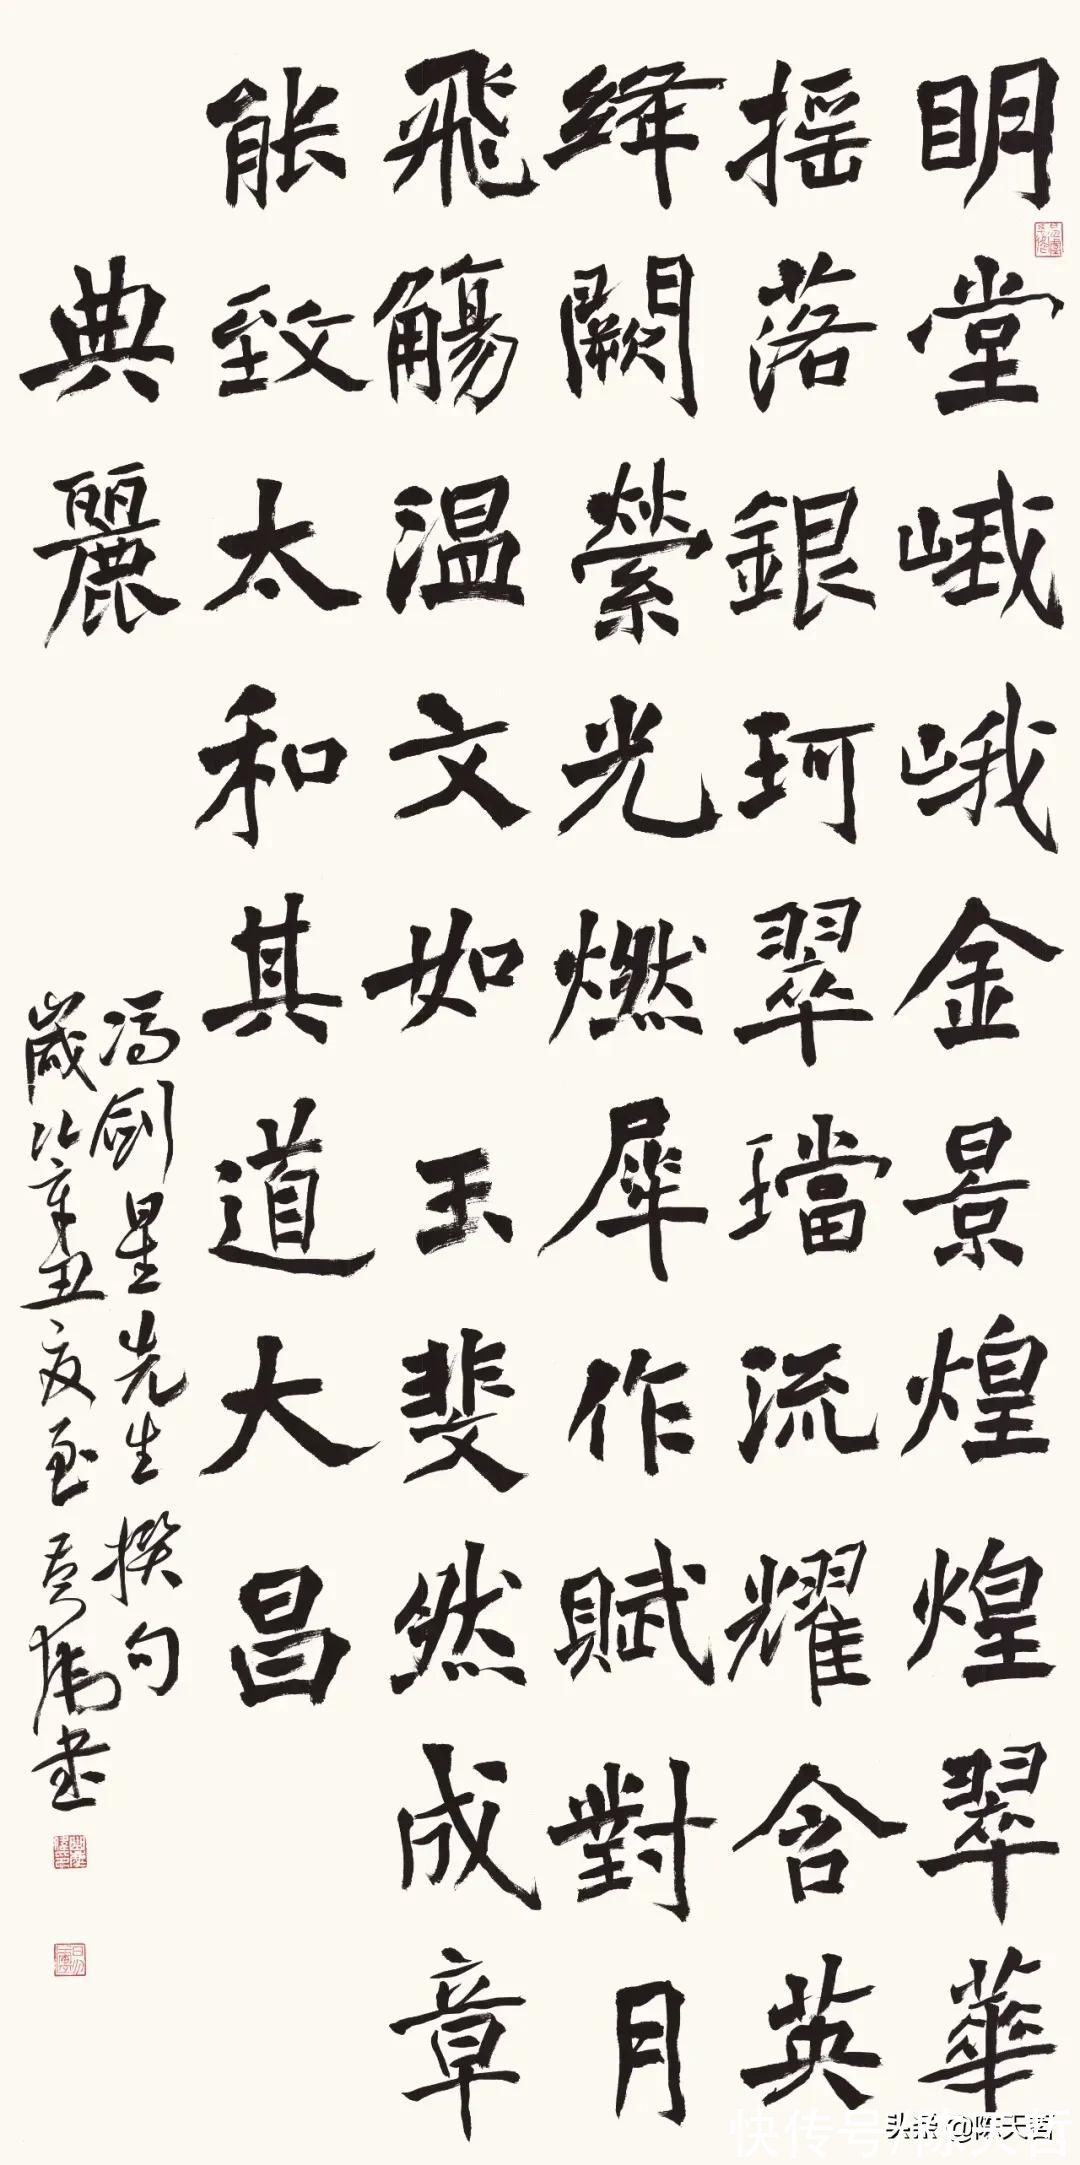 明堂峨峨金景煌煌翠華
摇落銀珂翠璫流耀含英
絳闕縈光燃犀作賦對月
飛觴温文如玉斐然成章
能致太和其道大昌
典麗
冯劍星先生撰句
歲次辛丑夏至
書
快传号/陈天哲
头条 @陈天哲